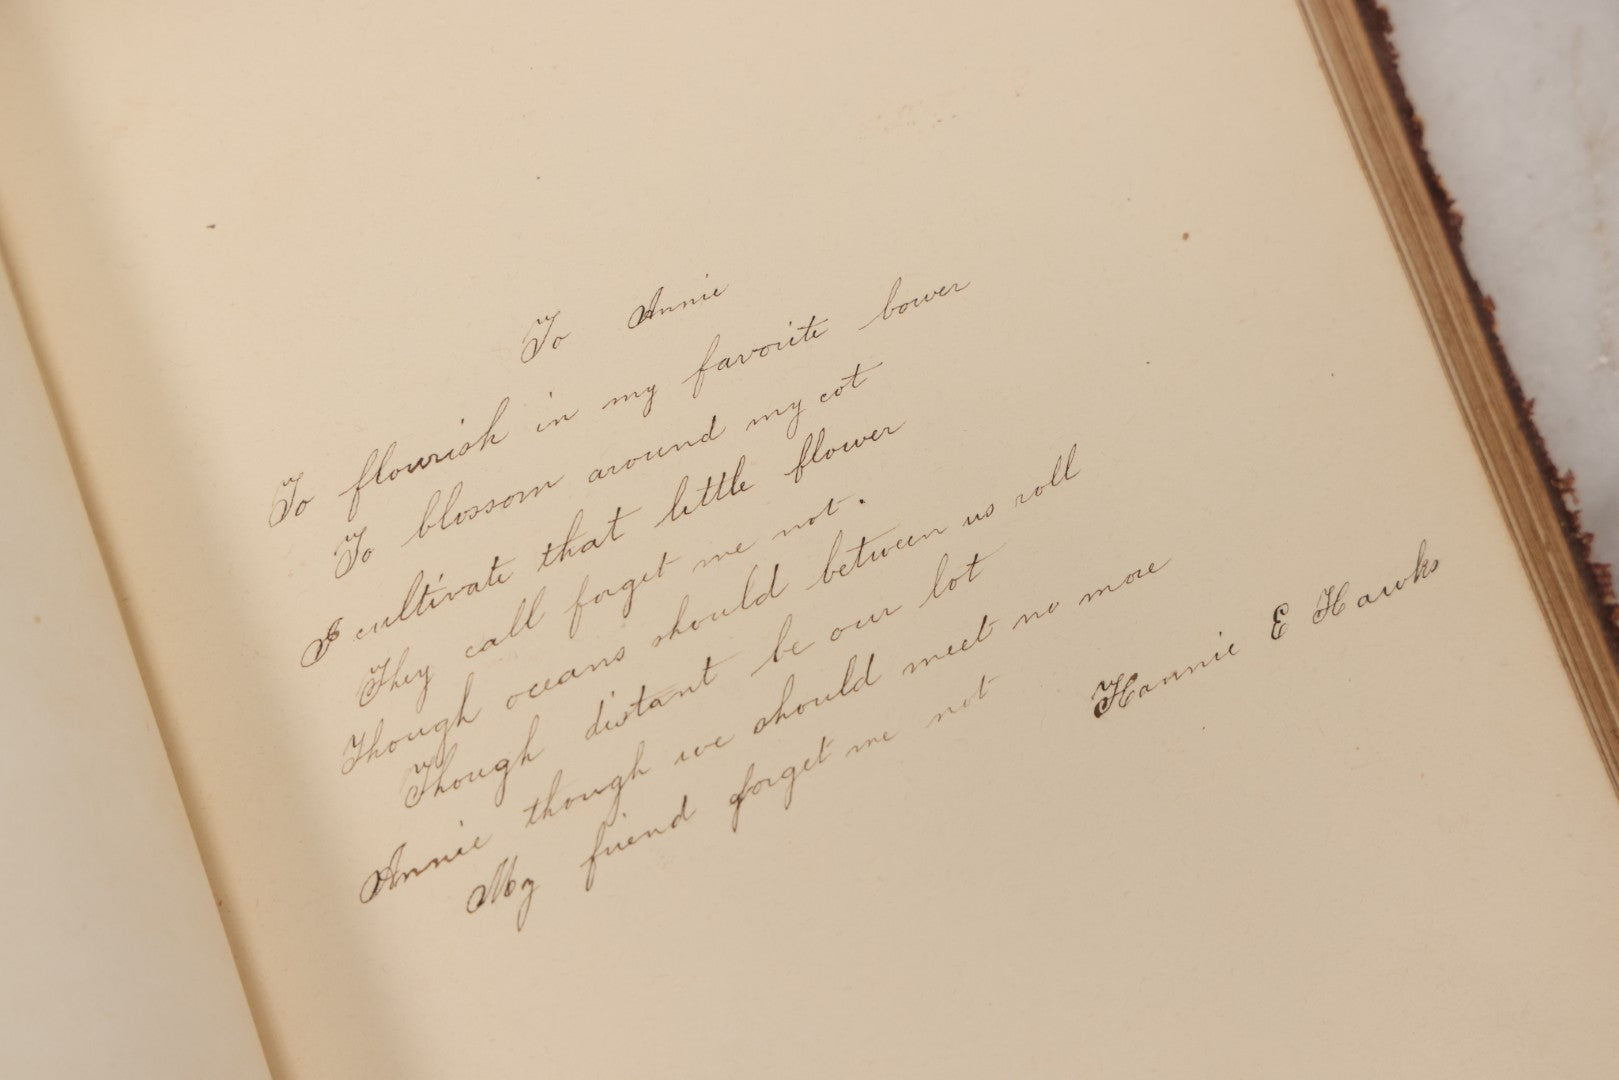 To Annie
To flourish in my favorite bower
To blossom around my cot
I cultivate that little flower
They call forget me not.
Though oceans should between us roll
Though distant be our lot
Annie though we should meet no more
My friend forget me not
Hannie E Hawks